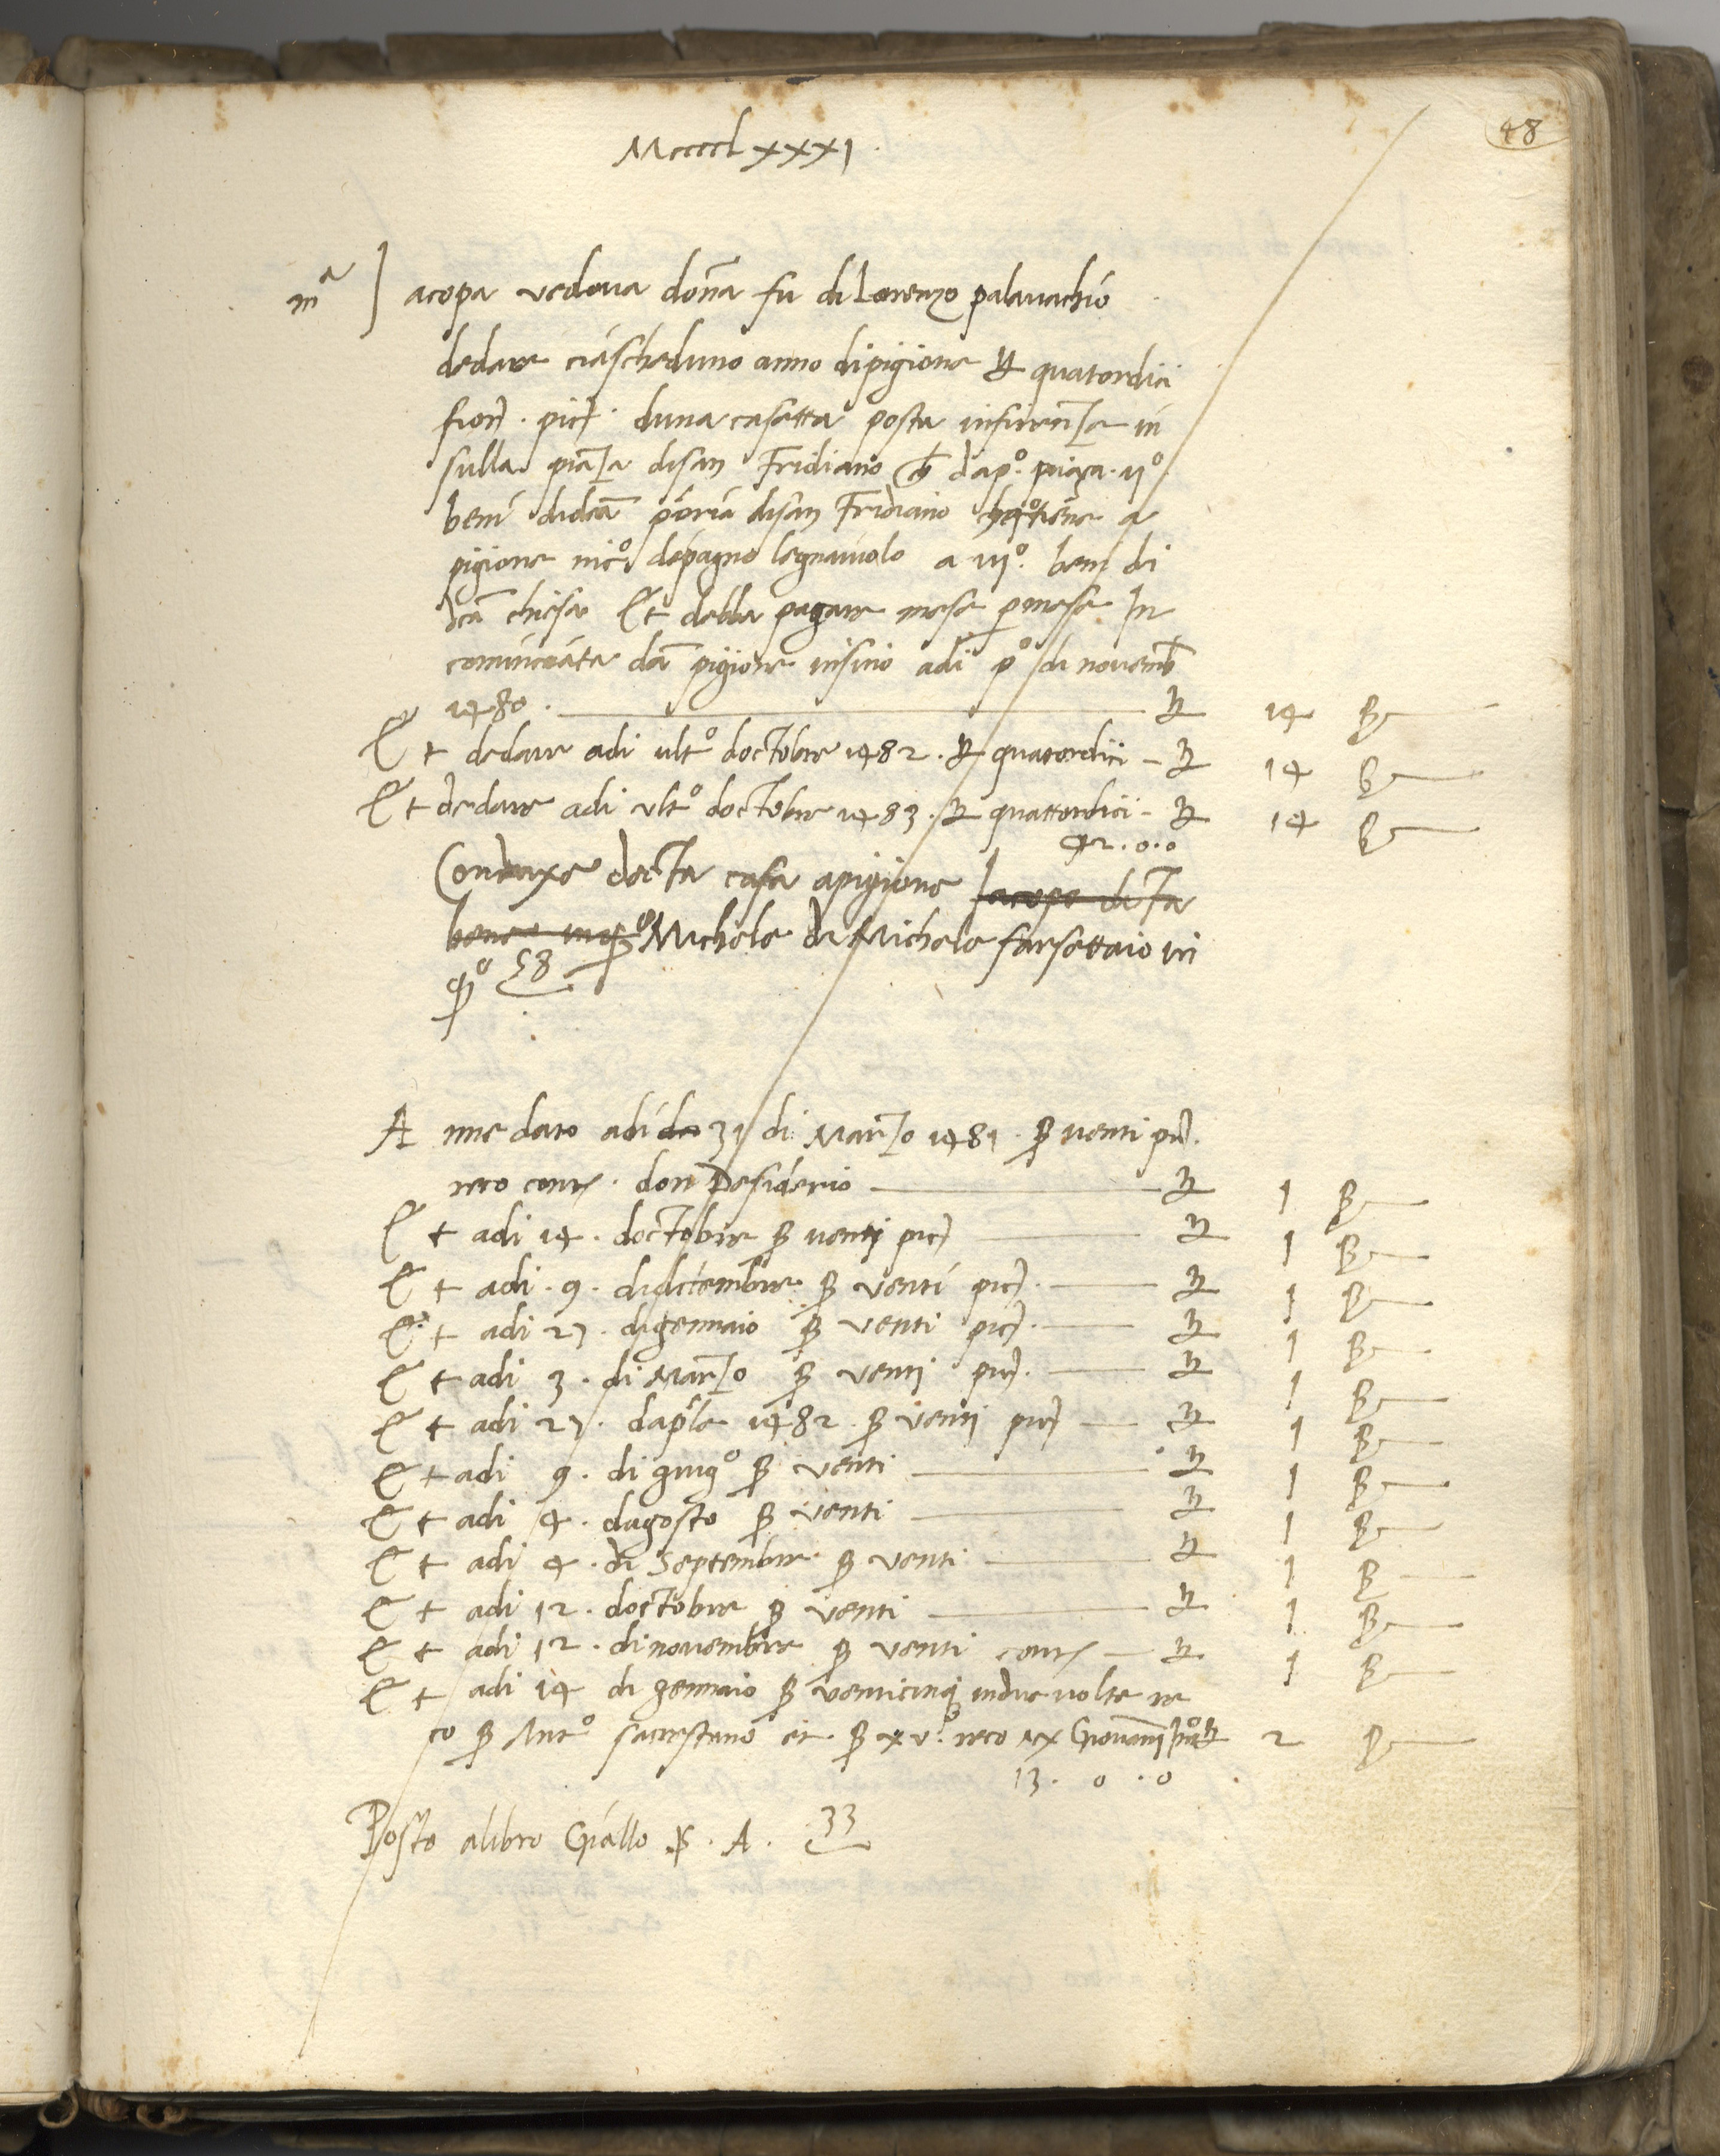 48
MccccLxxxj.
mª Jacopa vedova dona fu di Lorenzo palavachio
dedare ciascheduno anno dipigione ₶ quatordici
fior) . pic) . duna casetta posta infirenze in
sulla piaza disan Fridiano dap.º piaza . ijº
beni didcã pôria disan Fridiano tiene a
pigione nicº depagno legnaiuolo a iijº. beni di
dcã chiesa Et debba pagare mese p mese In
cominciata dcã pigione insino adi pº di novemb
1480 . ₶ 14 ß
Et dedare adi ultº doctobre 1482 . ₶ quatordici - ₶ 14 ß
Et dedare adi ultº doctobre 1483 . ₶ quattordici - ₶ 14 ß
42 . 0 . 0
Conduxe decta casa apigione Jacopo di Ta
Michele di Michele farsettaio in
qº 58
A nne dato adi da 31 di Marzo 1481 . ß venti pic) .
reco cont . don Desiderio ₶ 1 ß
Et adi 14 . doctobre ß venti pic) ₶ 1 ß
Et adi . 9 . didiciembre ß venti pic) . ₶ 1 ß
Et adi 27 . digennaio ß venti pic) . ₶ 1 ß
Et adi 3 . di Marzo ß venti pic) . ₶ 1 ß
Et adi 27 . daple 1482 . ß venti pic) ₶ 1 ß
Et adi 9 . di giugº ß venti ₶ 1 ß
Et adi 4 . dagosto ß venti ₶ 1 ß
Et adi 4 . di Septembre ß venti ₶ 1 ß
Et adi 12 . doctobre ß venti ₶ 1 ß
Et adi 12 . dinovembre ß venti cont ₶ 1 ß
Et adi 14 di gennaio ß venticinq indue volte re
co ß Antº sacrestano et ß xv . reco Giovanni ₶ 2 ß
13 . 0 . 0
Posto alibro Giallo . A . 33